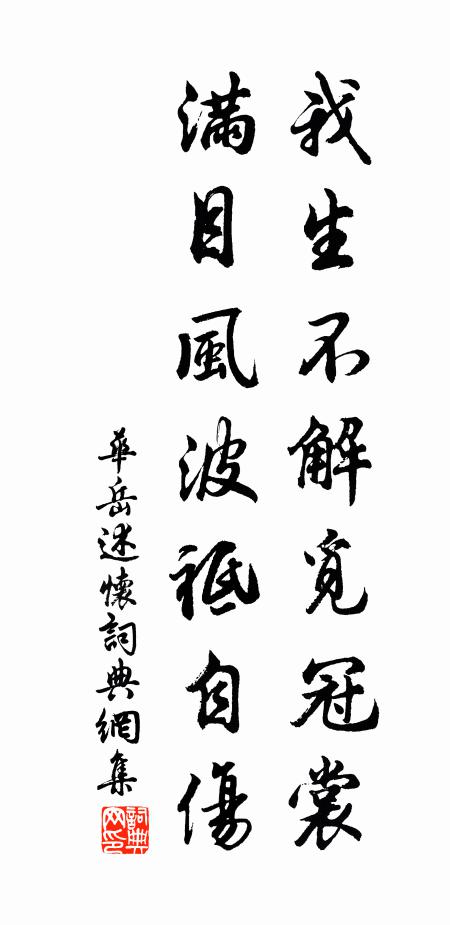 我生不解覓冠裳
滿目風波祗自傷
華岳述懷詞典網集
詞典網印